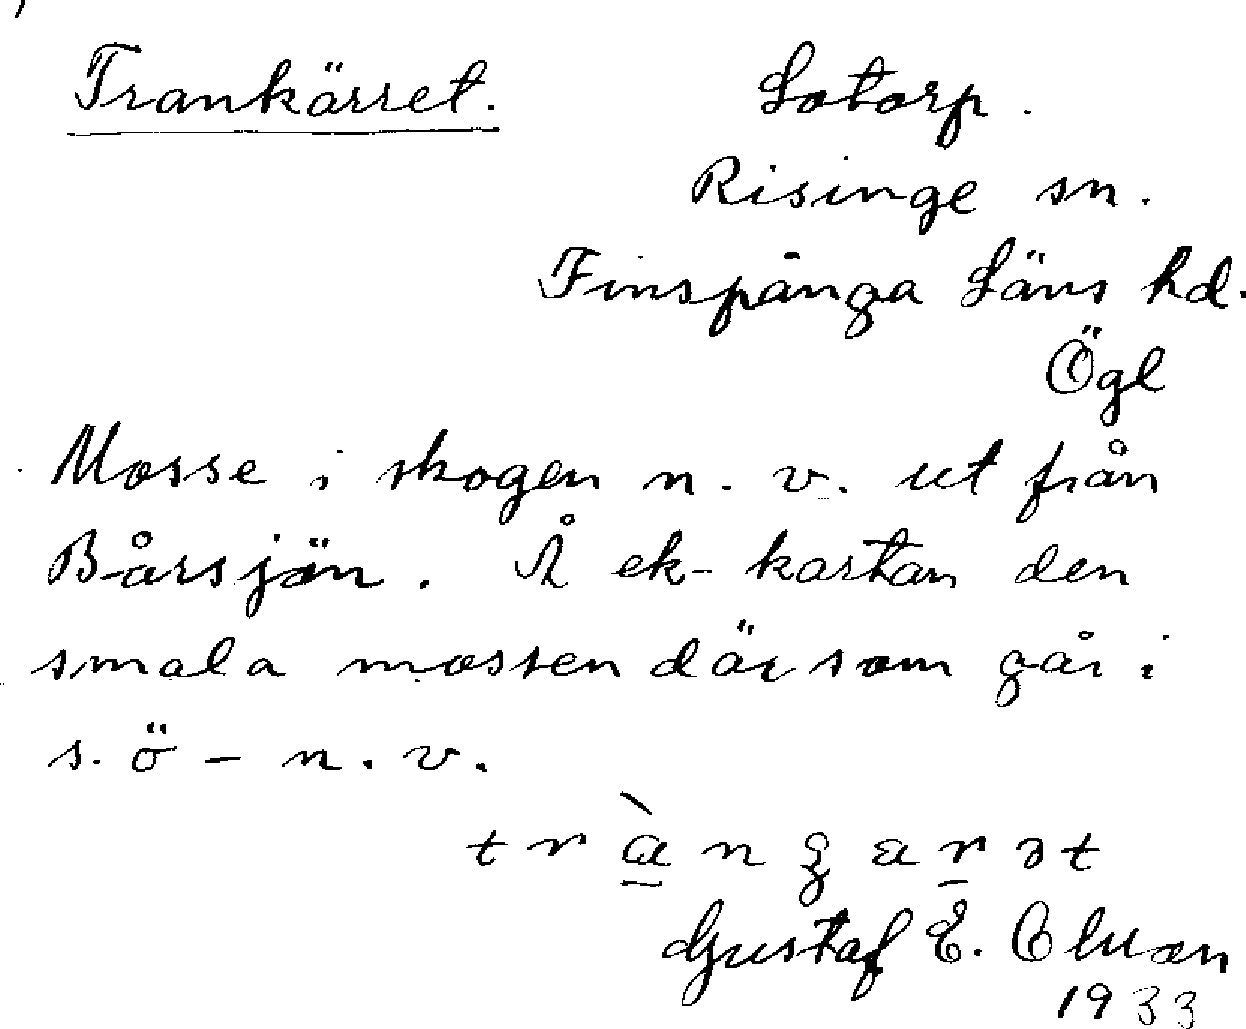 Trankärret. Lotorp.
Risinge sn.
Finspånga Läns hd.
Ögl
Mosse i skogen n. v. ut från
Bårsjön. Å ek-kartan den
smala mossen där som går i
s. ö - n. v.
Gustaf E.
1933